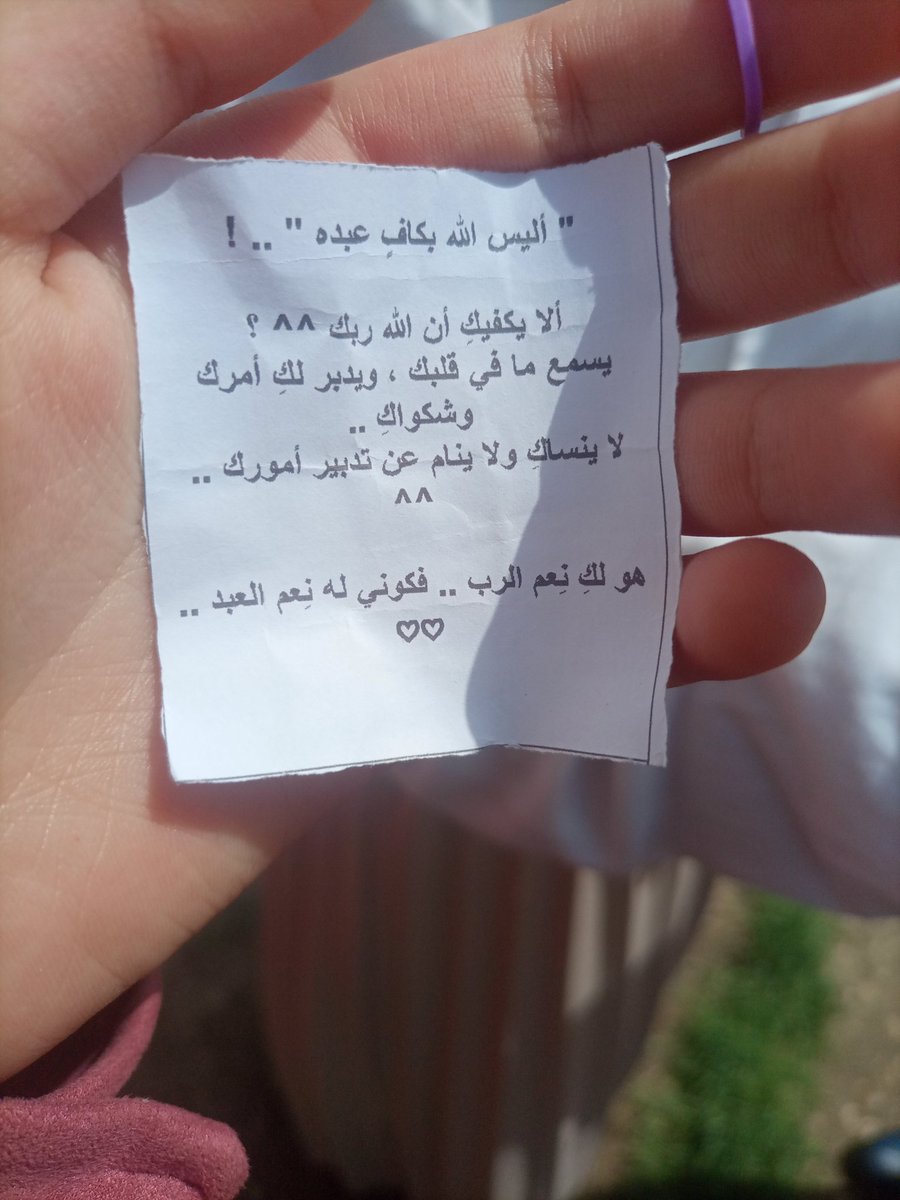 " أليس الله بكافٍ عبده " .. !
ألا يكفيكِ أن الله ربك ^^ ؟
يسمع ما في قلبك ، ويدبر لكِ أمرك
وشكواكِ ..
لا ينساكِ ولا ينام عن تدبير أمورك ..
^^
هو لكِ نِعم الرب .. فكوني له نِعم العبد ..
♡♡